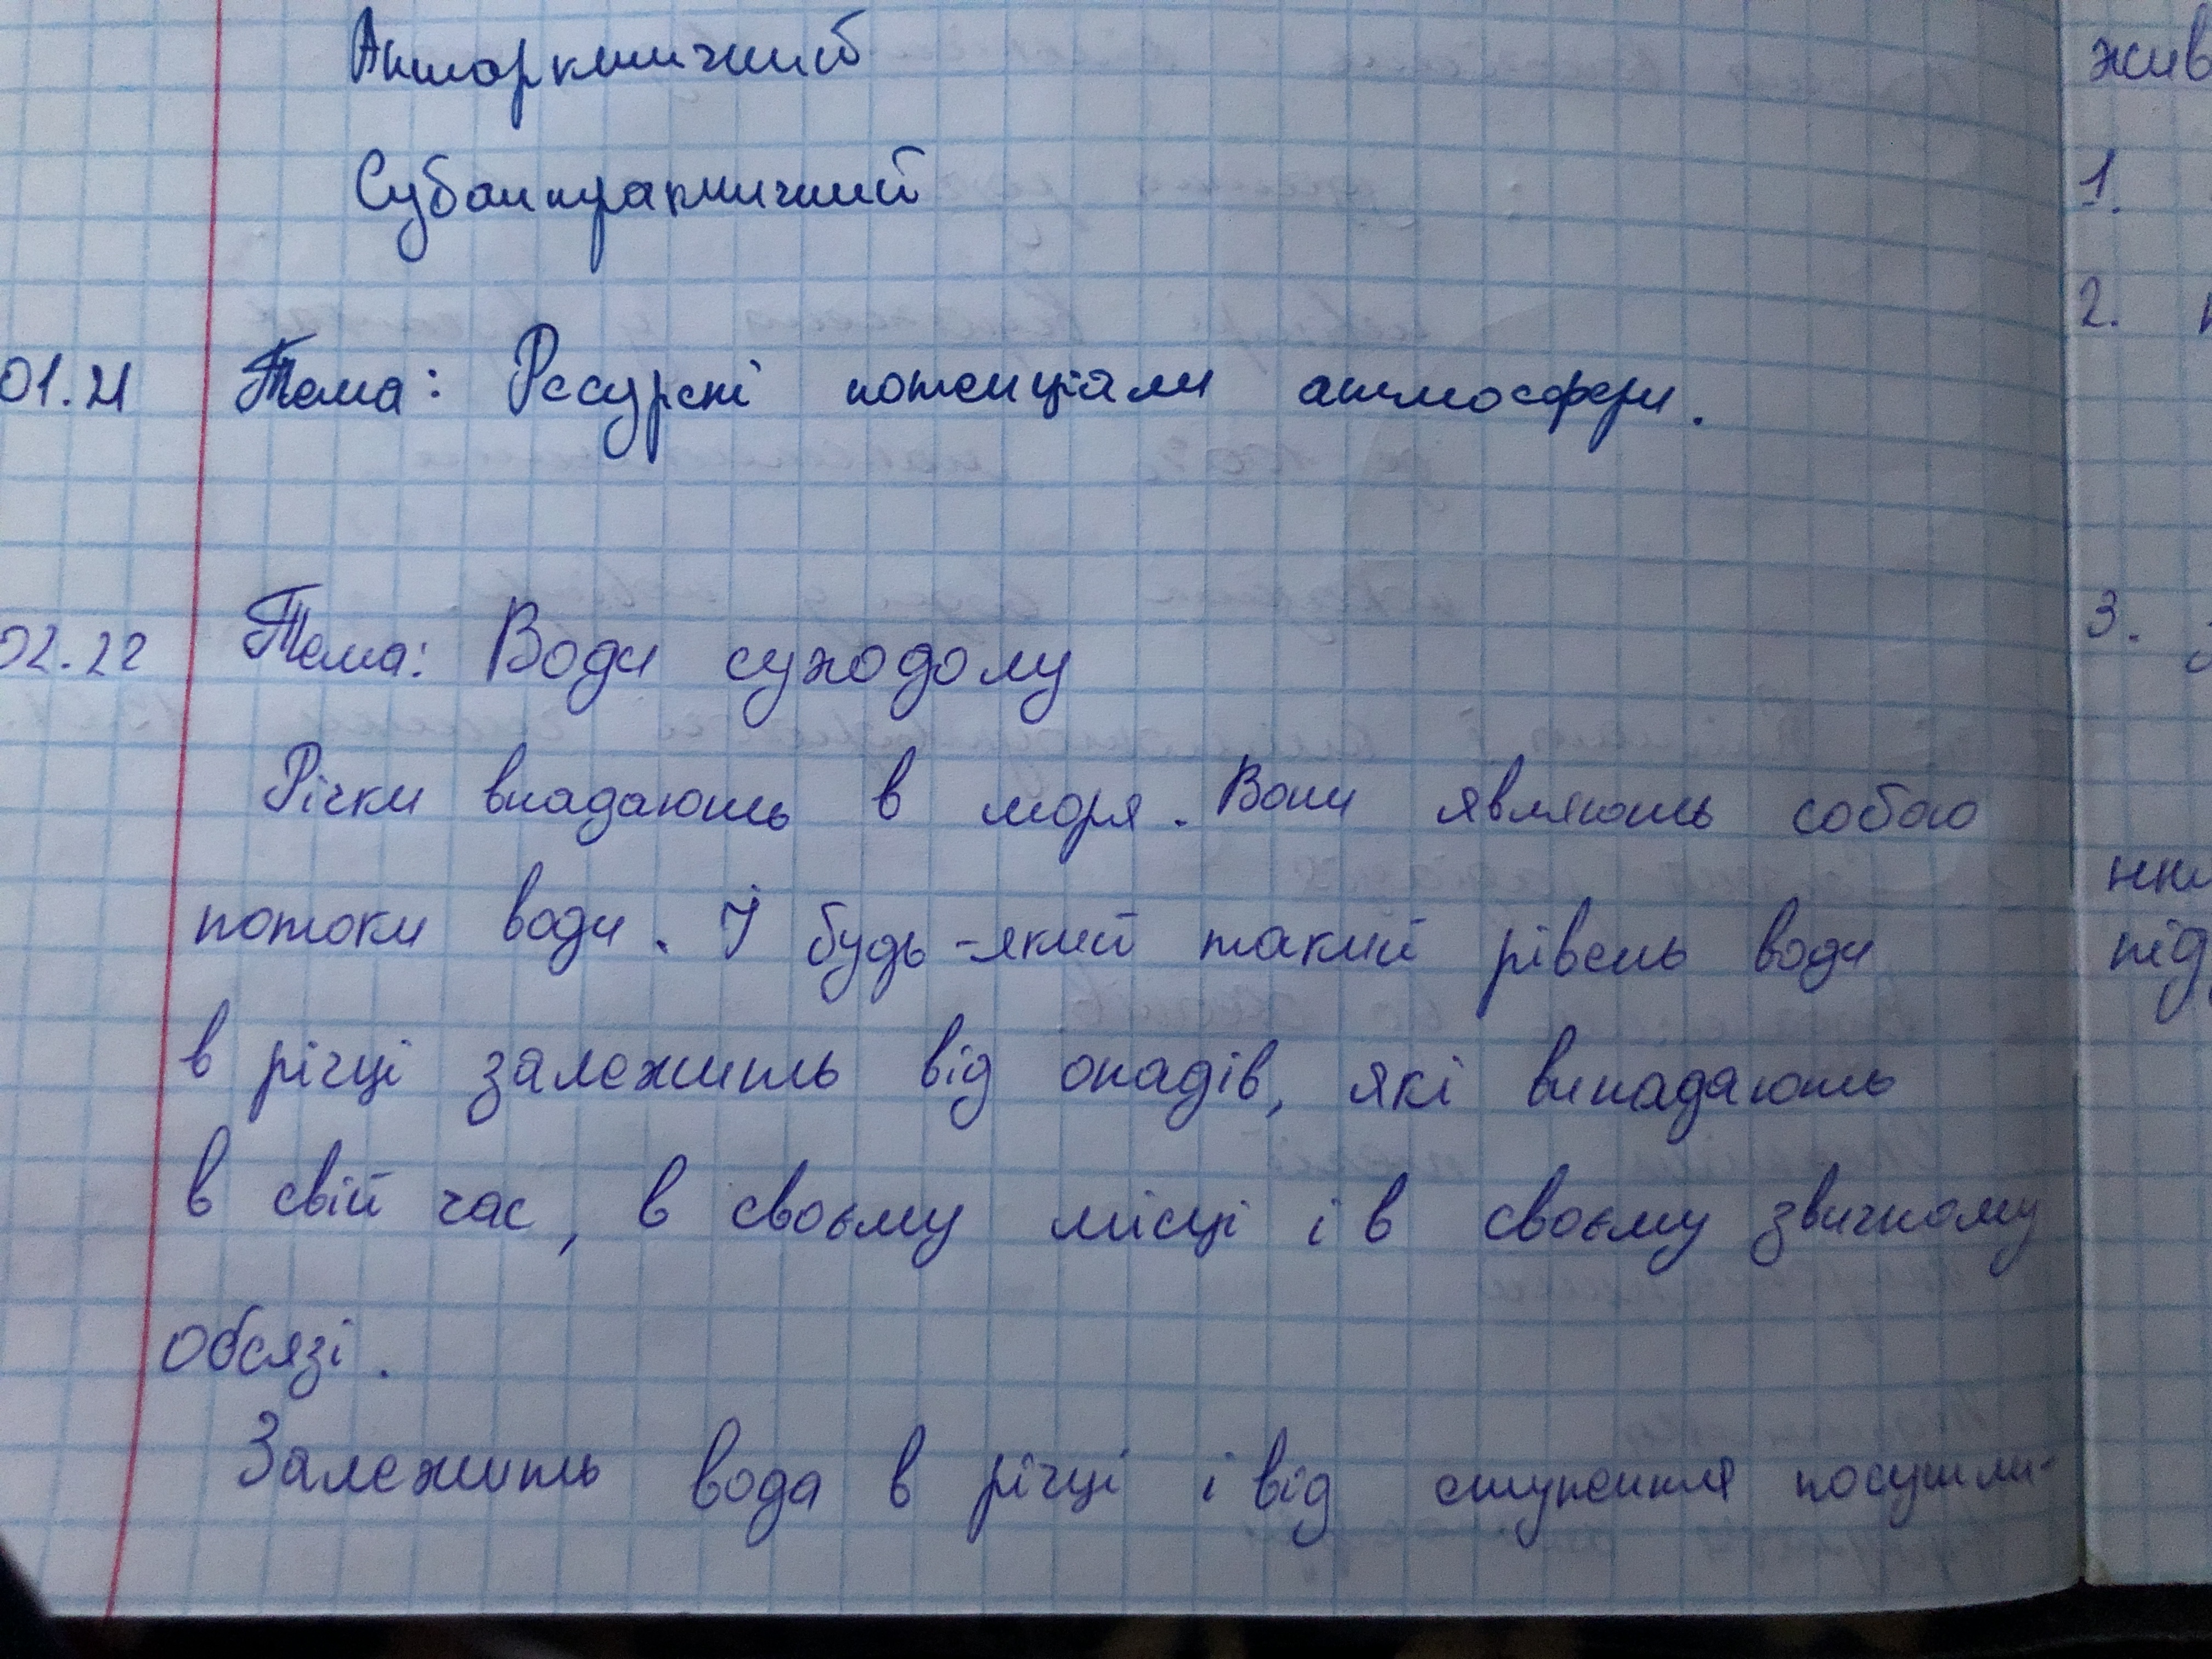 Антарктичний
Субантрарктичний
01.21 Тема: Ресурсні потенціали атмосфери.
02.22 Тема: Води суходолу
Річки впадають в моря. Вони являють собою
потоки води. І будь-який такий рівень води
в річці залежить від опадів, які випадають
в свій час, в своєму місці і в своєму звичному
обсязі.
Залежить вода в річці і від ступення посушли-
жив
1.
2.
3.
нки
під